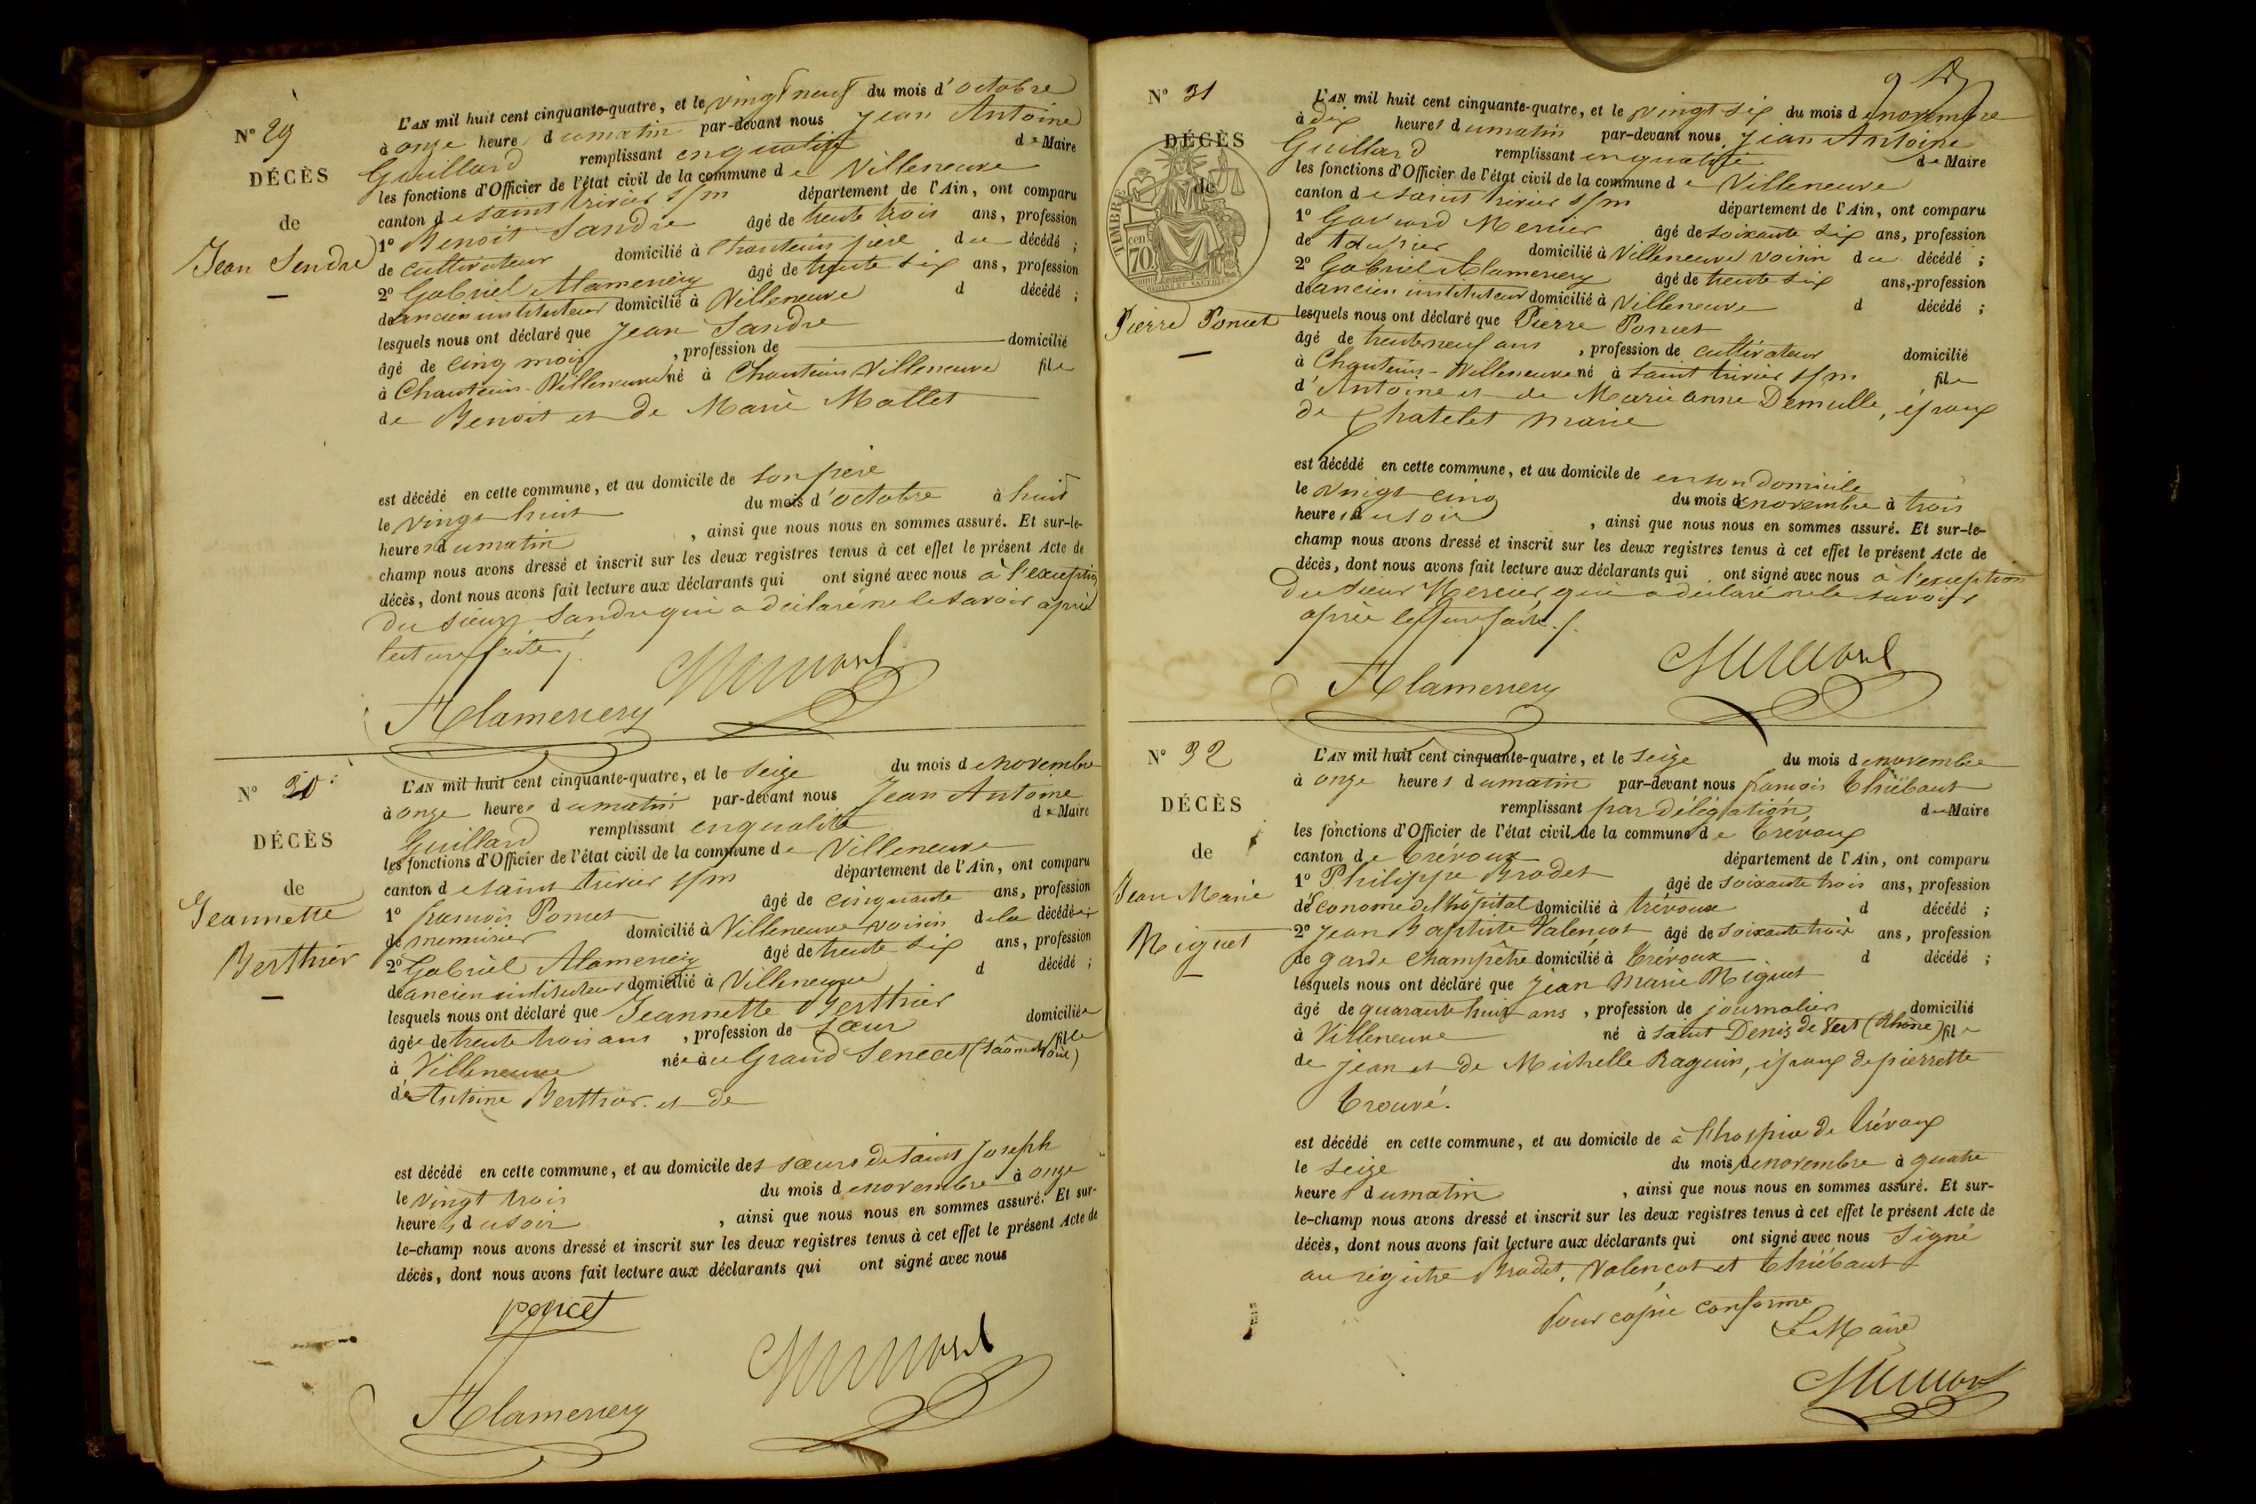 N° 29
DÉCÈS
de
Jean Sandre
L'AN mil huit cent cinquante-quatre, et le vingt neuf du mois d'octobre
à onze heure du matin par-devant nous Jean Antoine
Guillard remplissant en qualité de Maire
les fonctions d'Officier de l'état civil de la commune de Villeneuve
canton de saint trivier s/m département de l'Ain, ont comparu
1° Benoit Sandre âgé de trente trois ans, profession
de cultivateur domicilié à Chanteins père du décédé ;
2° Gabriel Alamercery âgé de trente six ans, profession
de ancien instituteur domicilié à Villeneuve d décédé ;
lesquels nous ont déclaré que Jean Sandre
âgé de cinq mois, profession de domicilié
à Chanteins-Villeneuve né à Chanteins Villeneuve fils
de Benoit et de Marie Mallet
est décédé en cette commune, et au domicile de son père
le vingt huit du mois d'octobre à huit
heures du matin, ainsi que nous nous en sommes assuré. Et sur-le-
champ nous avons dressé et inscrit sur les deux registres tenus à cet effet le présent Acte de
décès, dont nous avons fait lecture aux déclarants qui ont signé avec nous à l'exception
du sieur Sandre qui a déclaré ne le savoir après
lecture faite /.
Alamercery
N° 30
DÉCÈS
de
Jeannette
Berthier
L'AN mil huit cent cinquante-quatre, et le seize du mois de novembre
à onze heures du matin par-devant nous Jean Antoine
Guillard remplissant en qualité de Maire
les fonctions d'Officier de l'état civil de la commune de Villeneuve
canton de saint trivier s/m département de l'Ain, ont comparu
1° françois Poncet âgé de cinquante ans, profession
de menuisier domicilié à Villeneuve voisin de la décédée ;
2° Gabriel Alamercery âgé de trente six ans, profession
de ancien instituteur domicilié à Villeneuve d décédé ;
lesquels nous ont déclaré que Jeannette Berthier
âgée de trente trois ans, profession de sœur domiciliée
à Villeneuve née à Grand Senecet (Saône et Loire) fille
de Antoine Berthier et de
est décédé en cette commune, et au domicile des sœurs de saint Joseph
le vingt trois du mois de novembre à onze
heures du soir, ainsi que nous nous en sommes assuré. Et sur-
le-champ nous avons dressé et inscrit sur les deux registres tenus à cet effet le présent Acte de
décès, dont nous avons fait lecture aux déclarants qui ont signé avec nous
poncet
Alamercery
N° 31
DÉCÈS
de
TIMBRE
cen
70
Pierre Poncet
L'AN mil huit cent cinquante-quatre, et le vingt six du mois de novembre
à dix heures du matin par-devant nous Jean Antoine
Guillard remplissant en qualité de Maire
les fonctions d'Officier de l'état civil de la commune de Villeneuve
canton de saint trivier s/m département de l'Ain, ont comparu
1° Mercier âgé de soixante six ans, profession
de domicilié à Villeneuve voisin du décédé ;
2° Gabriel Alamercery âgé de trente six ans, profession
de ancien instituteur domicilié à Villeneuve d décédé ;
lesquels nous ont déclaré que Pierre Poncet
âgé de trente neuf ans, profession de cultivateur domicilié
à Chanteins-Villeneuve né à saint trivier s/m fils
d'Antoine et de Marie anne Demulle, époux
de Chatelet marie
est décédé en cette commune, et au domicile de en son domicile
le vingt cinq du mois de novembre à trois
heures du soir, ainsi que nous nous en sommes assuré. Et sur-le-
champ nous avons dressé et inscrit sur les deux registres tenus à cet effet le présent Acte de
décès, dont nous avons fait lecture aux déclarants qui ont signé avec nous à l'exception
du sieur Mercier qui a déclaré ne le savoir
après lecture faite /.
Alamercery
N° 32
DÉCÈS
de
Jean Marie
Niguet
L'AN mil huit cent cinquante-quatre, et le seize du mois de novembre
à onze heures du matin par-devant nous françois Thiébaut
remplissant par délégation de Maire
les fonctions d'Officier de l'état civil de la commune de Trévoux
canton de Trévoux département de l'Ain, ont comparu
1° Philippe Brodet âgé de soixante trois ans, profession
de Econome de l'hôpital domicilié à trévoux d décédé ;
2° Jean Baptiste Valençot âgé de soixante trois ans, profession
de garde champêtre domicilié à Trévoux d décédé ;
lesquels nous ont déclaré que Jean Marie Niguet
âgé de quarante huit ans, profession de journalier domicilié
à Villeneuve né à saint Denis de Vert (Rhône) fils
de jean et de Michelle Raguin, époux de pierrette
Trouvé.
est décédé en cette commune, et au domicile de à l'hospice de Trévoux
le seize du mois de novembre à quatre
heures du matin, ainsi que nous nous en sommes assuré. Et sur-
le-champ nous avons dressé et inscrit sur les deux registres tenus à cet effet le présent Acte de
décès, dont nous avons fait lecture aux déclarants qui ont signé avec nous Signé
au régistre Brodet, Valençot et Thiébaut
Pour copie conforme
Le Maire